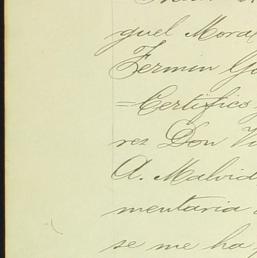 guel Mora
Fermin Go
=Certifico
res Don Vi
A. Malvid
mentaria
se me ha